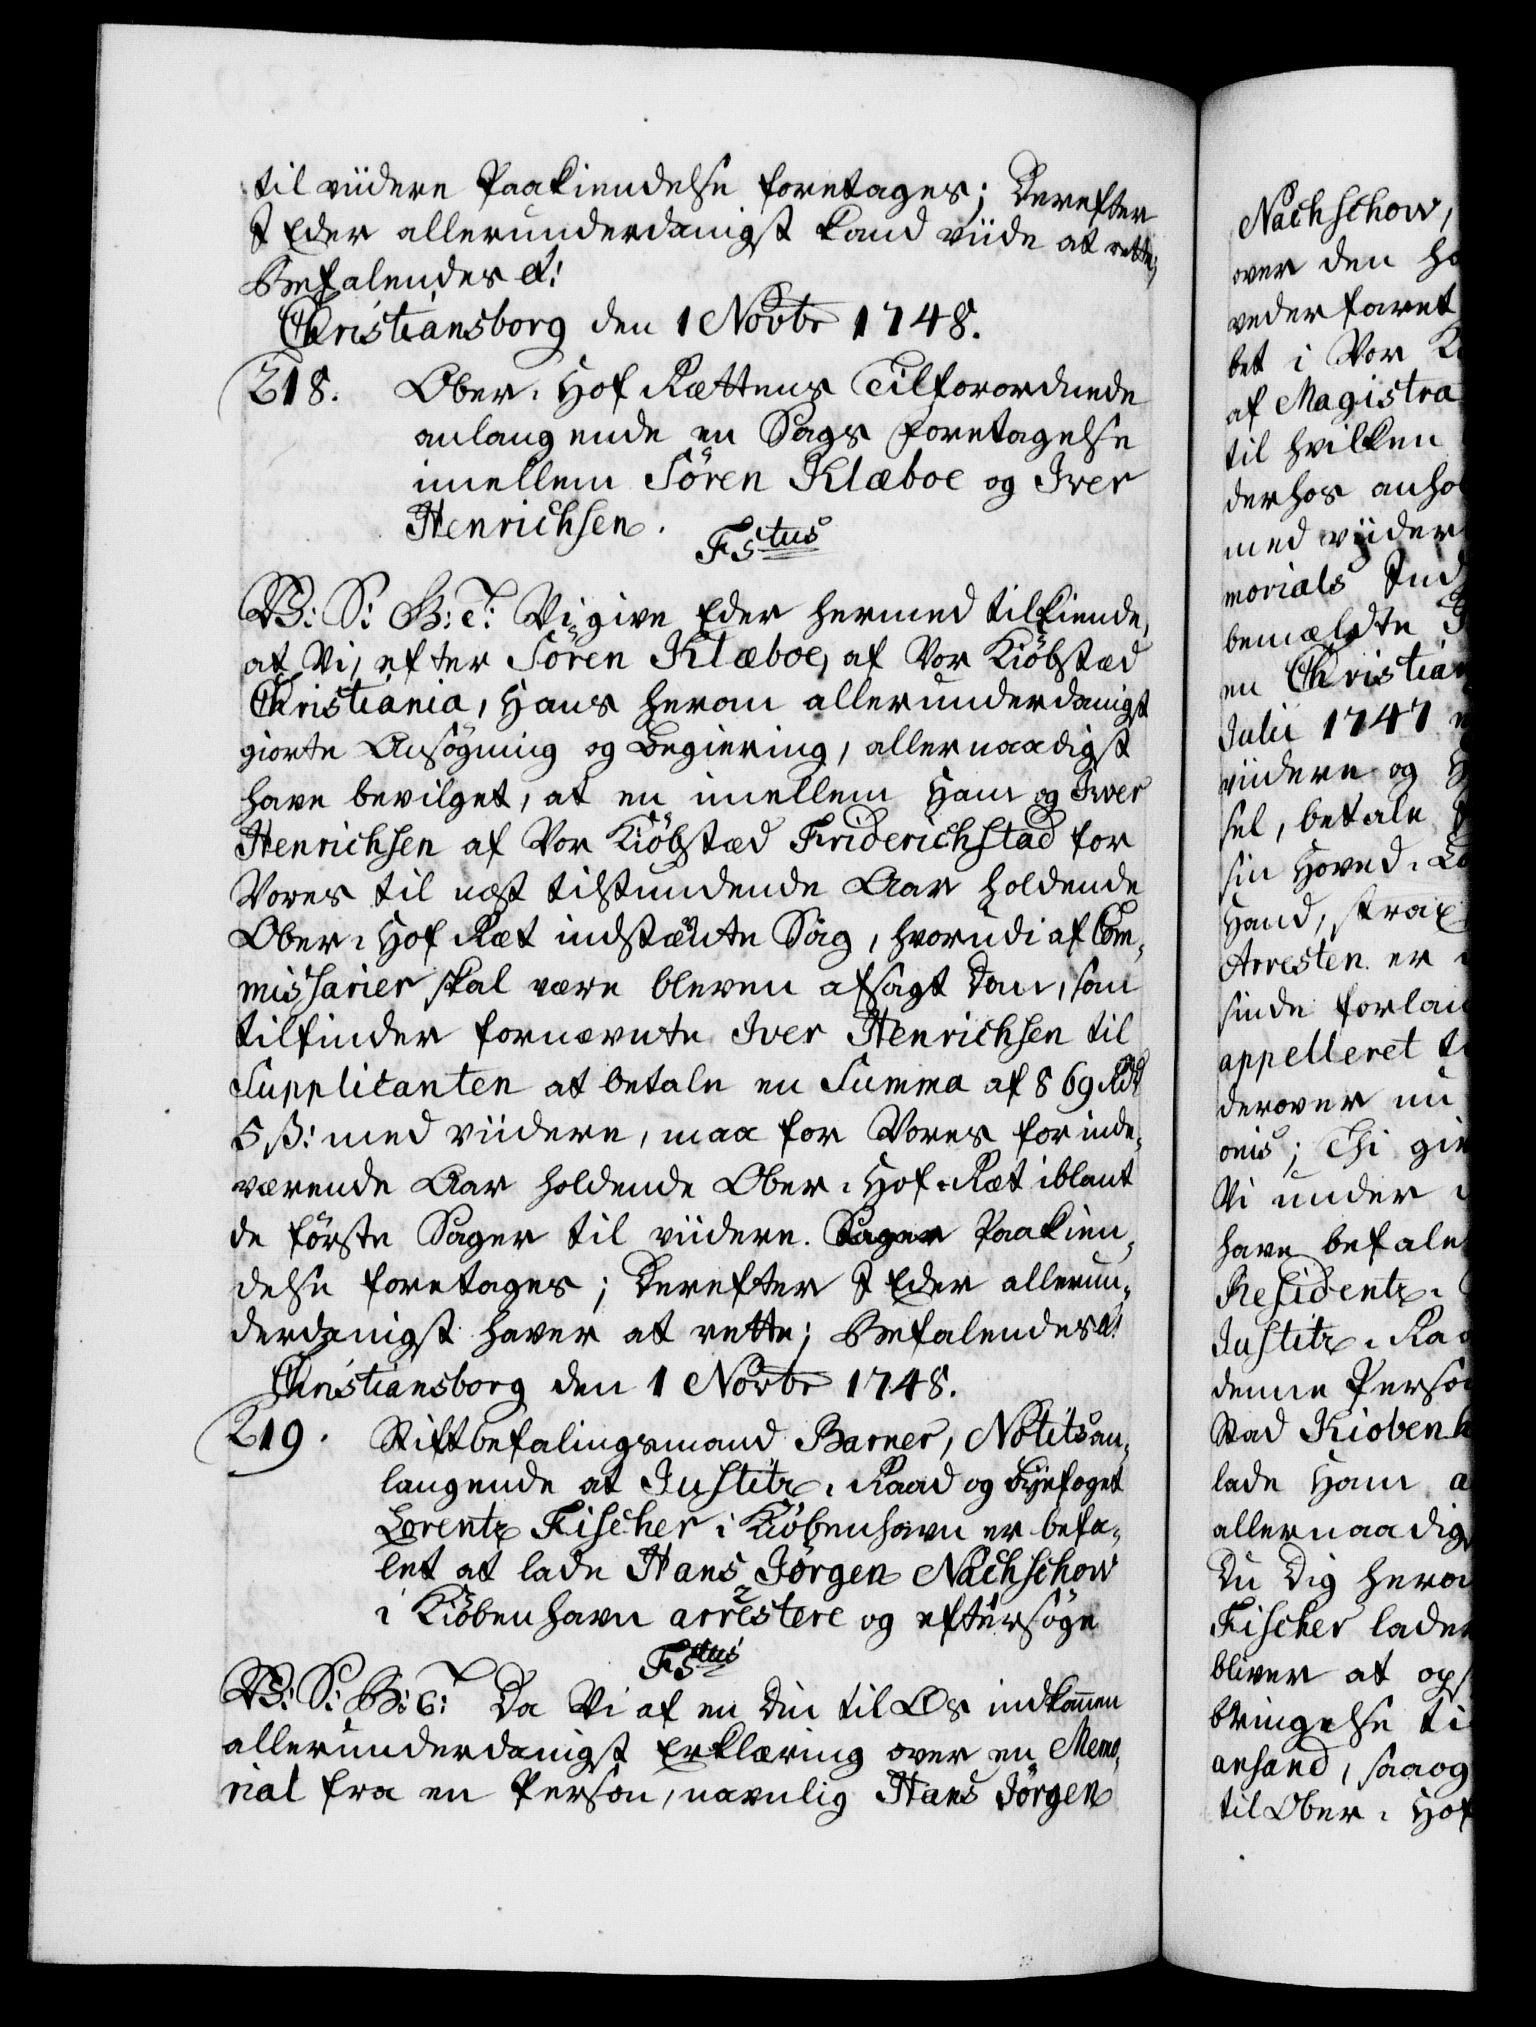 til viidere Paakiendelse foretages; Derefter
I Eder allerunderdanigst kand viide at rette;
Befalendes &!
Christiansborg den 1 Novbr 1748.
218. Ober-Hof Rættens Tilforordnede
anlangende en Sags foretagelse
imellem Sören Klæboe og Iver
Henrichsen.
Fstus
W: S: G: T: Vi give Eder hermed tilkiende,
at Vi, efter Sören Klæboe, af Vor Kiöbstæd
Christiania, Hans herom allerunderdanigst
giorte Ansøgning og Begiering, allernaadigst
have bevilget, at en imellem Ham og Iver
Henrichsen af Vor Kiöbstæd Friderichstad for
Vores til næst tilstundende Aar holdende
Ober-Hof Ræt indstævnte Sag, hvorudi af Com-
missarier skal være bleven afsagt Dom, som
tilfinder fornævnte Iver Henrichsen til
Supplicanten at betale en Summa af 869 Rdr
5 ß: med viidere, maa for Vores for inde-
værende Aar holdende Ober-Hof-Ræt iblant
de förste Sager til viidere. Sager Paakien-
delse foretages; Derefter I Eder allerun-
derdanigst haver at rette; Befalendes &!
Christiansborg den 1 Novbr 1748.
219. Stiftbefalingsmand Barner, Notits an-
langende at Justitz-Raad og Byefoget
Lorentz Fischer i Kiöbenhavn er befa-
let at lade Hans Jörgen Nachschow
i Kiöbenhavn arrestere og eftersøge
Fstus
W: S: G: T: Da Vi af en Din til Os indkommen
allerunderdanigst Erklæring over en Memo-
rial fra en Person, navnlig Hans Jörgen
Nachschow,
over den
vederfaret
bet i Vor
af Magistra
til hvilken
derhos anhol
med viider
morials Ind
bemældte
en Christian
Julii 1747
viidere og
sel, betale
sin Hoved-
Haand, strax
Arresten er
sinde forlan
appelleret
derover nu
onis; Thi giv
Vi under
have befale
Residentz-
Justitz-Raa
denne Person
Stad Kiobenh
lade Ham
allernaadig
Du Dig herom
Fischer lader
bliver at op
bringelse ti
anhand, saa og
til Ober-Hof